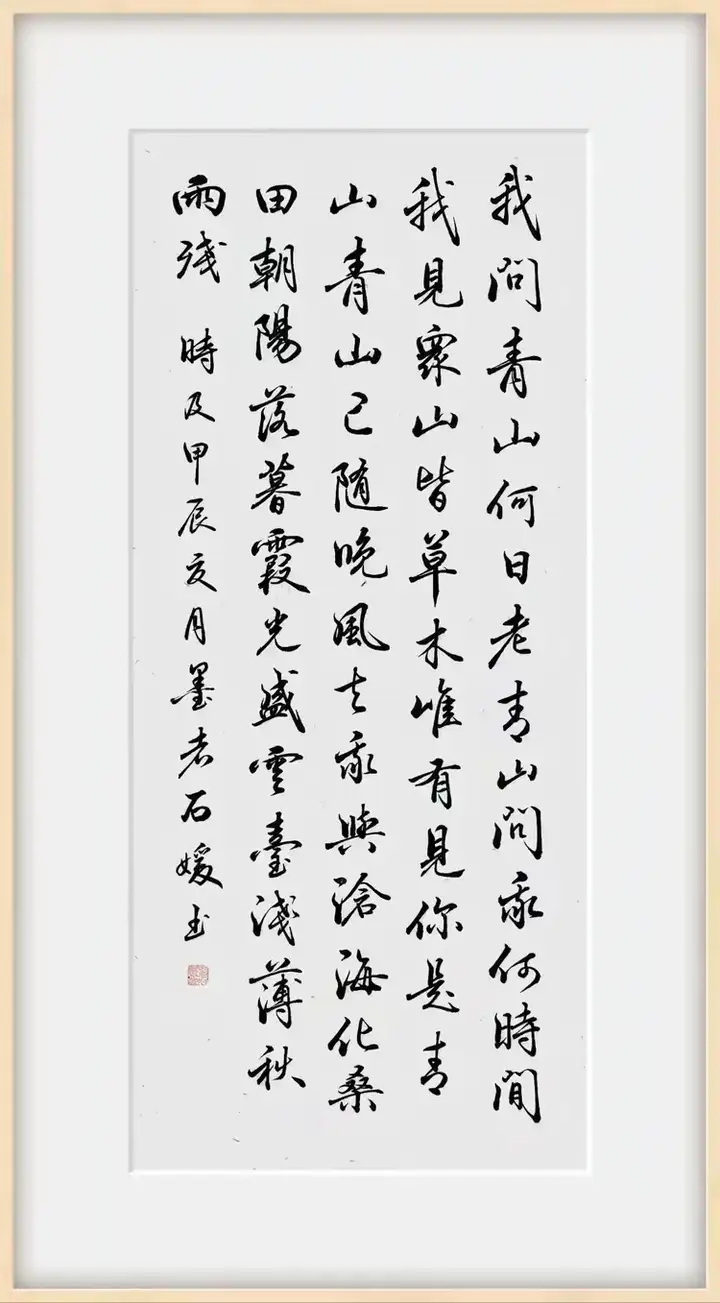 我問青山何日老青山問我何時閒
我見眾山皆草木唯有見你是青
山青山已随晚風去我與滄海化桑
田朝陽落暮霞光盛雲臺淺薄秋
雨殘 時及甲辰亥月墨者石媛